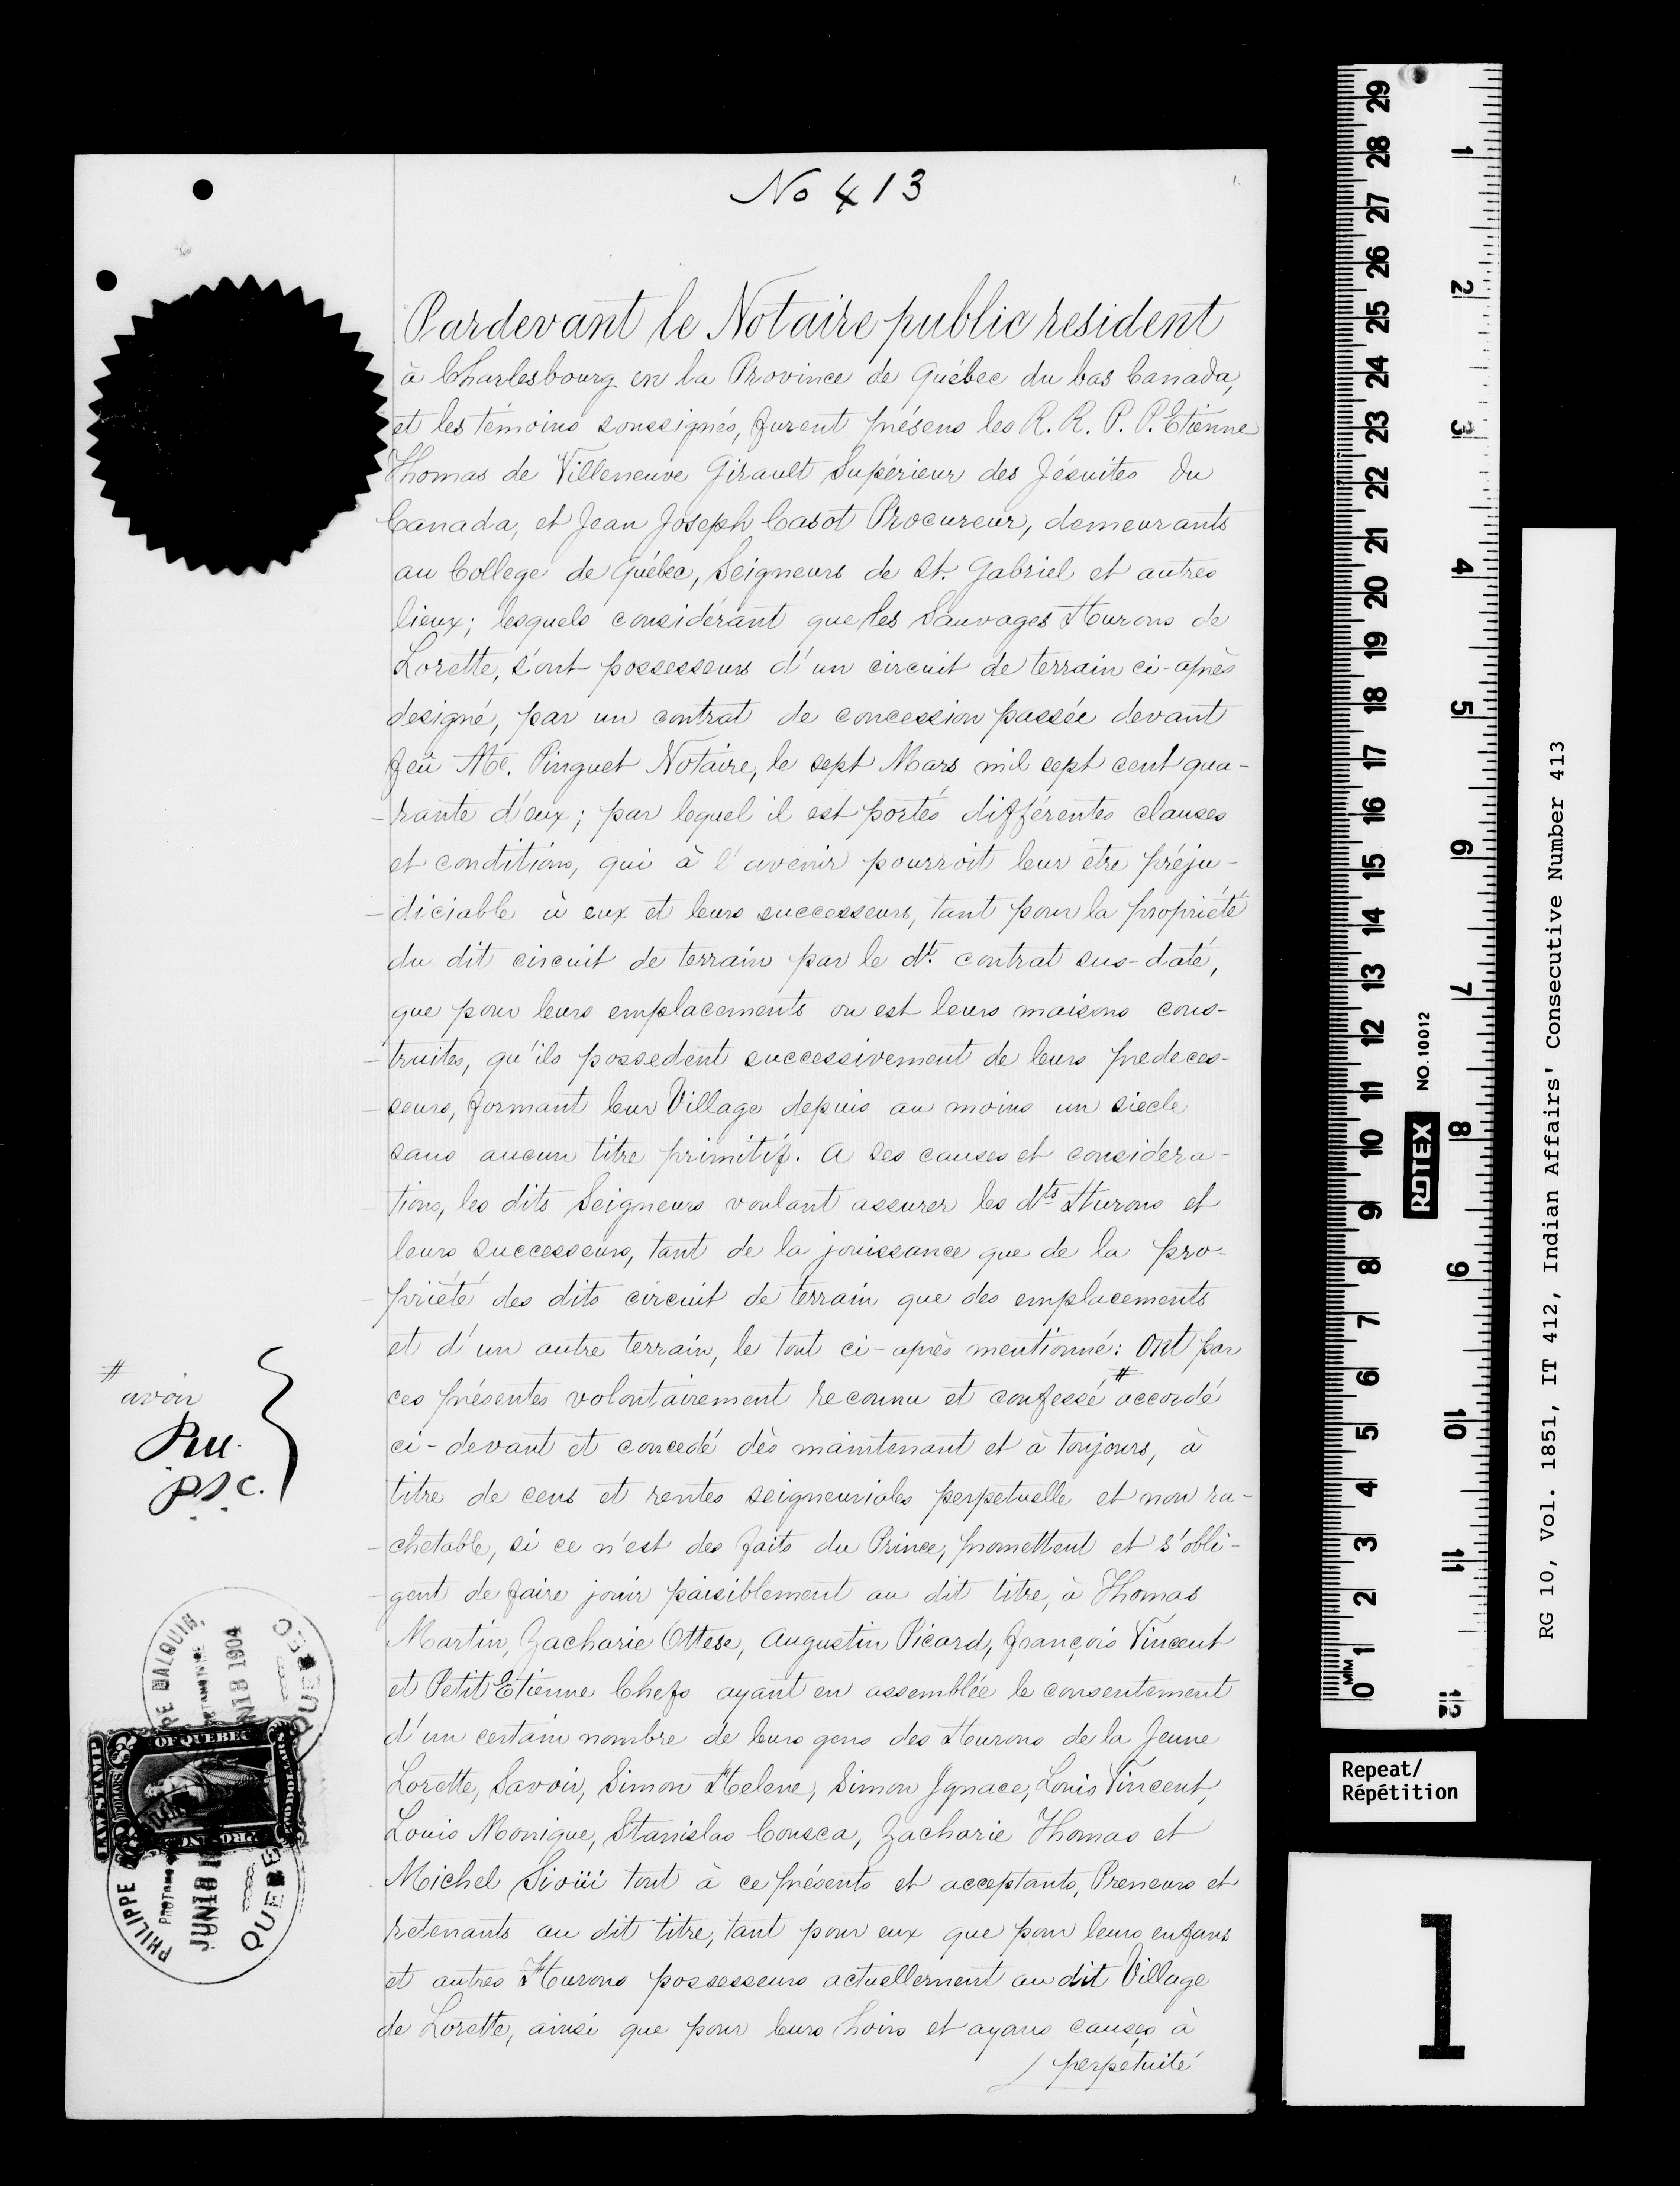 No 413
1.
Pardevant le Notaire public resident
à Charlesbourg en la Province de Québec du bas Canada,
et les témoins soussignés, furent présens les R. R. P. P. Etienne
Thomas de Villeneuve Girault Supérieur des Jésuites du
Canada, et Jean Joseph Casot Procureur, demeurants
au College de Québec, Seigneurs de St. Gabriel et autres
lieux; lesquels considérant que les Sauvages Hurons de
Lorette, s'ont possesseurs d'un circuit de terrain ci-après
designé, par un contrat de concession passée devant
feû Me. Pinguet Notaire, le sept Mars mil sept cent qua-
-rante d'eux; par lequel il est portés différentes clauses
et conditions, qui à l'avenir pourroit leur être préju-
-diciable à eux et leurs successeurs, tant pour la propriété
du dit circuit de terrain par le dt. contrat sus-daté,
que pour leurs emplacements ou est leurs maisons cons-
-truites, qu'ils possedent successivement de leurs predeces-
-seurs, formant leur Village depuis au moins un siecle
sans aucun titre primitif. A ses causes et considera-
-tions, les dits Seigneurs voulant assurer les dts Hurons et
leurs successeurs, tant de la jouissance que de la pro-
-priété des dits circuit de terrain que des emplacements
et d'un autre terrain, le tout ci-après mentionné: Ont par
ces présentes volontairement reconnu et confessé # accordé
ci-devant et concedé dès maintenant et à toujours, à
titre de cens et rentes seigneuriales perpetuelle et non ra-
-chetable, si ce n'est des faits du Prince, promettent et s'obli-
-gent de faire jouir paisiblement au dit titre, à Thomas
Martin, Zacharie Ottese, Augustin Picard, François Vincent
et Petit Etienne Chefs ayant en assemblée le consentement
d'un certain nombre de leurs gens des Hurons de la Jeune
Lorette, Savoir, Simon Helene, Simon Ignace, Louis Vincent,
Louis Monique, Stanislas Cousca, Zacharie Thomas et
Michel Sioüi tout à ce présents et acceptants, Preneurs et
retenants au dit titre, tant pour eux que pour leurs enfans
et autres Hurons possesseurs actuellement au dit Village
de Lorette, ainsi que pour leurs hoirs et ayans causes à
/ perpetuité
#
avoir
PSC.
JUN 18 1904
QUEBEC
LAW STAMP
OF QUEBEC
DOLLARS
PROVINCE
PHILIPPE
JUN 18
QUEBEC
29 28 27 26 25 24 23 22 21 20 19 18 17 16 15 14 13 12 11 10 9 8 7 6 5 4 3 2 1 0
MM
1 2 3 4 5 6 7 8 9 10 11 12
NO. 10012
ROTEX
RG 10, Vol. 1851, IT 412, Indian Affairs' Consecutive Number 413
Repeat/
Répétition
1